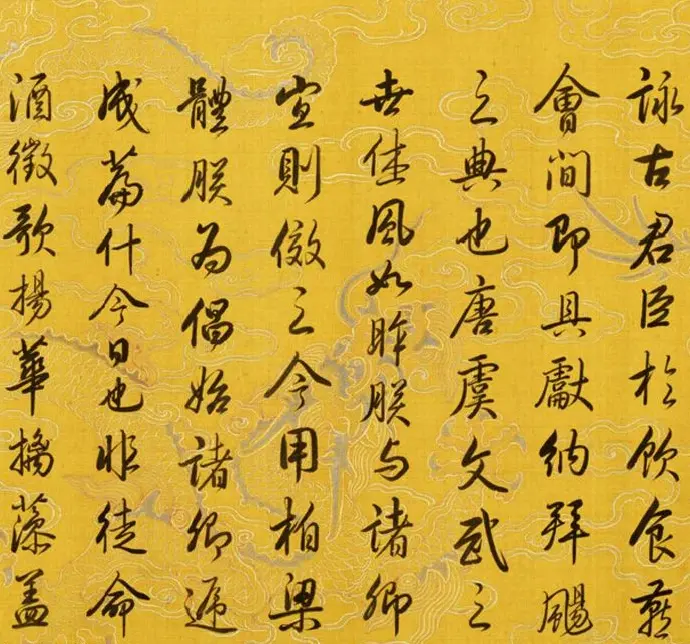 詠古君臣於飲食燕
會間即具獻納拜颺
之典也唐虞文武之
世佳風如眸朕与諸卿
宜則倣之今用柏梁
體朕為倡始諸卿遞
成篇什今日也非徒命
酒徵歌揚華摛藻蓋